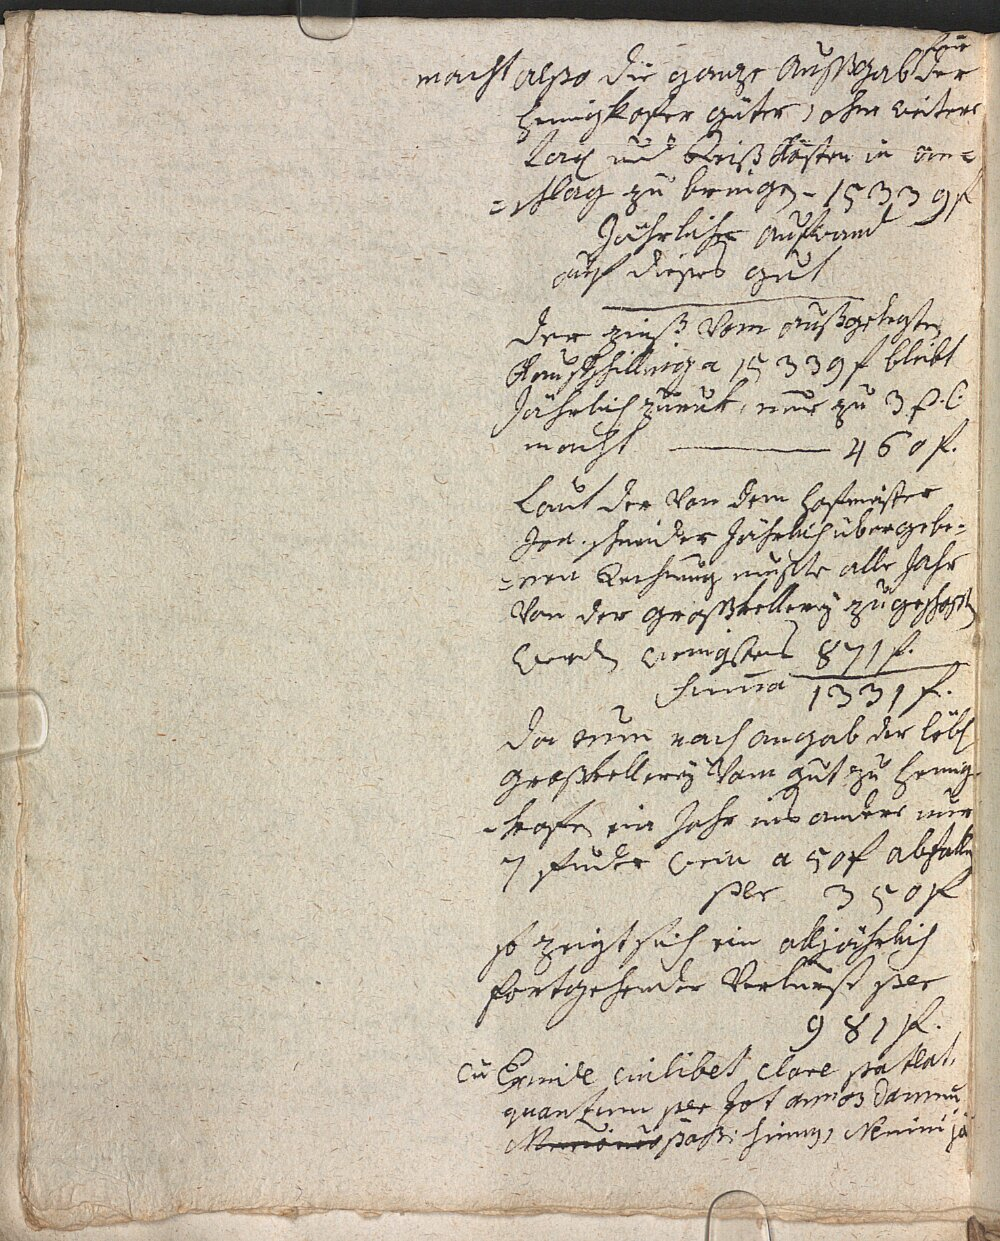 für
macht also die ganze Außgab der
Hemigkofer güter, ohne weitere
Tax und Reißkösten in an=
=schlag zu bringen – 15339 f
Jährlicher Aufwand
auf dieses gut
Der zinß vom außgelegten
Kaufschilling a 15339 f bleibt
Jährlich zuruk, nur zu 3 p. C.
macht —— 460 f.
Laut der von dem Hofmeister
Jos. schneider Jährlich übergebe=
=nen Rechnung mußte alle Jahr
von der großkellerey zugeschoßen
werden wenigstens 871 f.
Suma 1331 f.
Da nun nach angab der löbl
großkellerey vom gut zu Hemig=
=kofen ein Jahr ins andere nur
7 fuder wein a 50 f abfallen
per 350 f
so zeigt sich ein alljährlich
fortgehender Verlurst per
981 f.
Exinde cuilibet clare pateat,
quantum per tot annos damnu
passi simus, Nemini